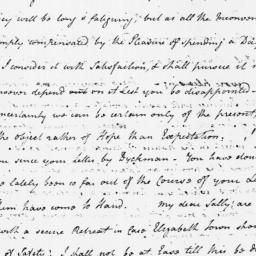 will be long & fatiguing; but as all the Inconven
mply compensated by the Pleasure of spending a Da
I consider it with Satisfaction, & shall pursue it
moever depend on it Lest you be disappointed—
ncertainty we can be certain only of the present,
the object rather of Hope than Expectation.
you since your Letter by Dyckman. You have
lately been so far out of the Course of your Le
hem have come to Hand. My dear Sally; are
with a secure Retreat in Case Elizabeth Town shou
of Safety; I shall not be at Ease till this be d